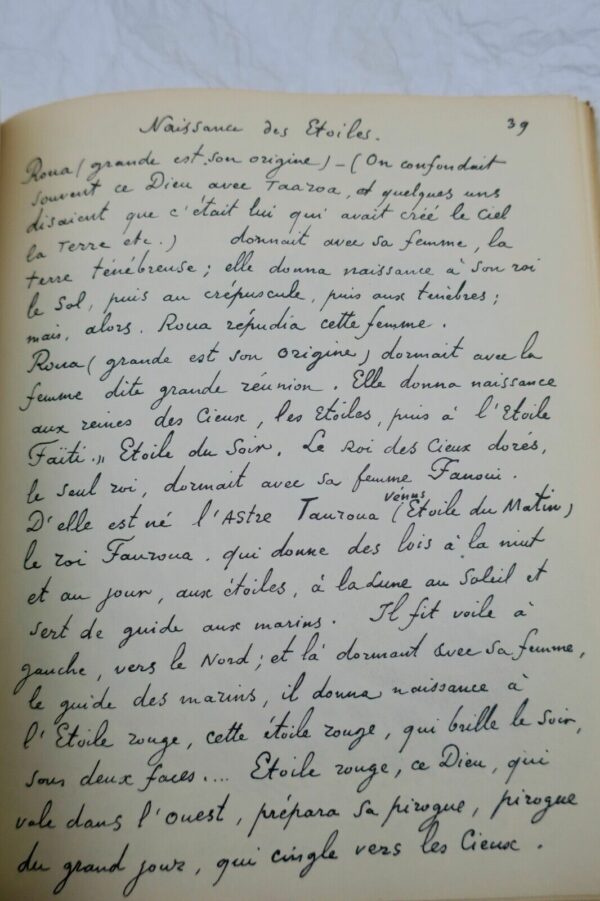 Naissance des Etoiles. 39
Roua (grande est son origine) - (On confondait
souvent ce Dieu avec Taaroa, et quelques uns
disaient que c'était lui qui avait créé le Ciel
la Terre etc.) dormait avec sa femme, la
terre ténébreuse; elle donna naissance à son roi
le Sol, puis au crépuscule, puis aux ténèbres;
mais, alors. Roua répudia cette femme.
Roua (grande est son origine) dormait avec la
femme dite grande réunion. Elle donna naissance
aux reines des Cieux, les Etoiles, puis à l'Etoile
Faïti., Etoile du Soir. Le Roi des Cieux dorés,
le seul roi, dormait avec sa femme Fanoui.
Vénus
D'elle est né l'Astre Tauroua (Etoile du Matin)
le roi Fauroua. qui donne des lois à la nuit
et au jour, aux étoiles, à la Lune au Soleil et
sert de guide aux marins. Il fit voile à
gauche, vers le Nord; et là dormant avec sa femme,
le guide des marins, il donna naissance à
l'Etoile rouge, cette étoile rouge, qui brille le Soir,
sous deux faces.... Etoile rouge, ce Dieu, qui
vole dans l'Ouest, prépara sa pirogue, pirogue
du grand jour, qui cingle vers les Cieux.